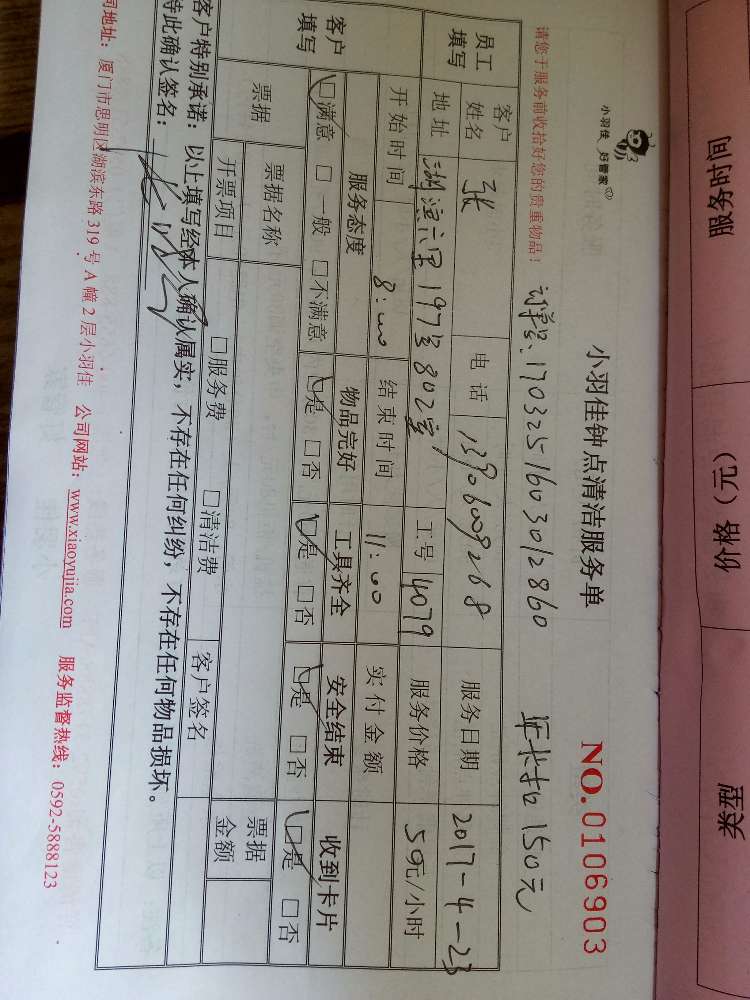 小羽佳 好管家
小羽佳钟点清洁服务单
NO.0106903
请您于服务前收拾好您的贵重物品！
订单号：1703251603012860
年卡扣150元
员工填写
客户姓名 张 电话 13906009268 服务日期 2017-4-23
地址 湖滨六里197号802室 工号 4079 服务价格 50元/小时
开始时间 8:00 结束时间 11:00 实付金额
客户填写
服务态度 物品完好 工具齐全 安全结束 收到卡片
□满意 □一般 □不满意 □是 □否 □是 □否 □是 □否 □是 □否
票据 票据名称 票据金额
开票项目 □服务费 □清洁费 客户签名
客户特别承诺：以上填写经本人确认属实，不存在任何纠纷，不存在任何物品损坏。
特此确认签名：
司地址：厦门市思明区湖滨东路319号A幢2层小羽佳 公司网站：www.xiaoyujia.com 服务监督热线：0592-5888123
服务时间 价格（元） 类型